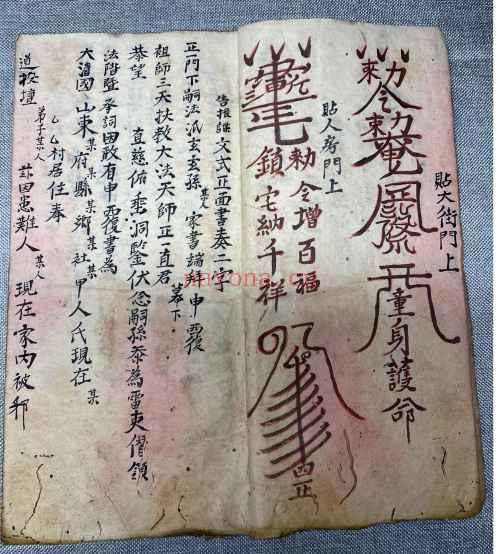 貼大街門上
童身護命
貼人房門上
勅令增百福
鎖宅納千祥
四正
文式正面書奏二字
正一門下嗣法派玄玄孫某人 家書端申覆
祖師三天扶教大法天師正一真君 幕下
恭望 真慈佑垂洞鑒伏念嗣孫忝為雷吏僭領
法階暨奉詞因敢有申覆書為
大清國山東某府某縣某鄉某社某甲人氏現在某
乙乙村居住奉
道 壇弟子某人 因患難人某人現在家內被邪
nayona.cn